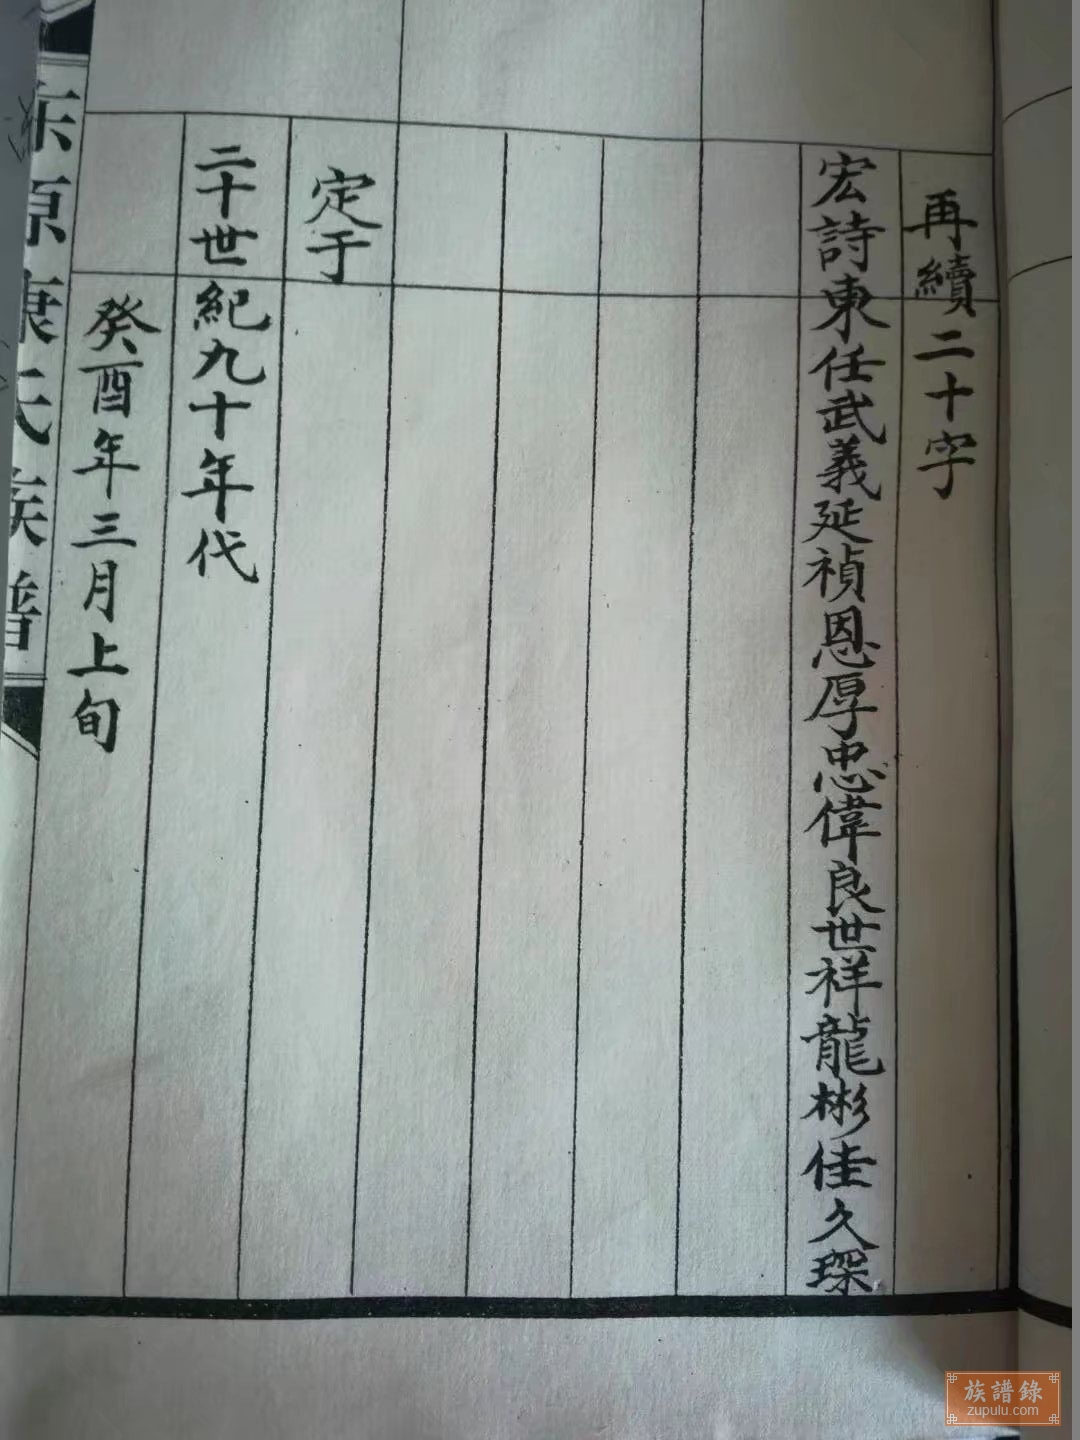 再續二十字
宏詩東任武義延禎恩厚忠偉良世祥龍彬佳久琛
定于
二十世紀九十年代
癸酉年三月上旬
东原康氏族譜
族譜錄
zupulu.com